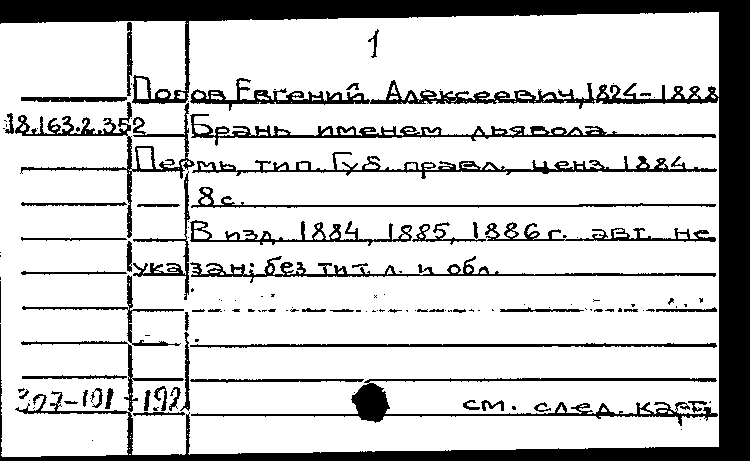 1
Попов, Евгений Алексеевич, 1824-1888
18.163.2.352 Брань именем дьявола.
Пермь, тип. Губ. правл., ценз. 1884.
8 с.
В изд. 1884, 1885, 1886 г. авт. не
указан; без тит. л. и обл.
307-101-192 см. след. карт.